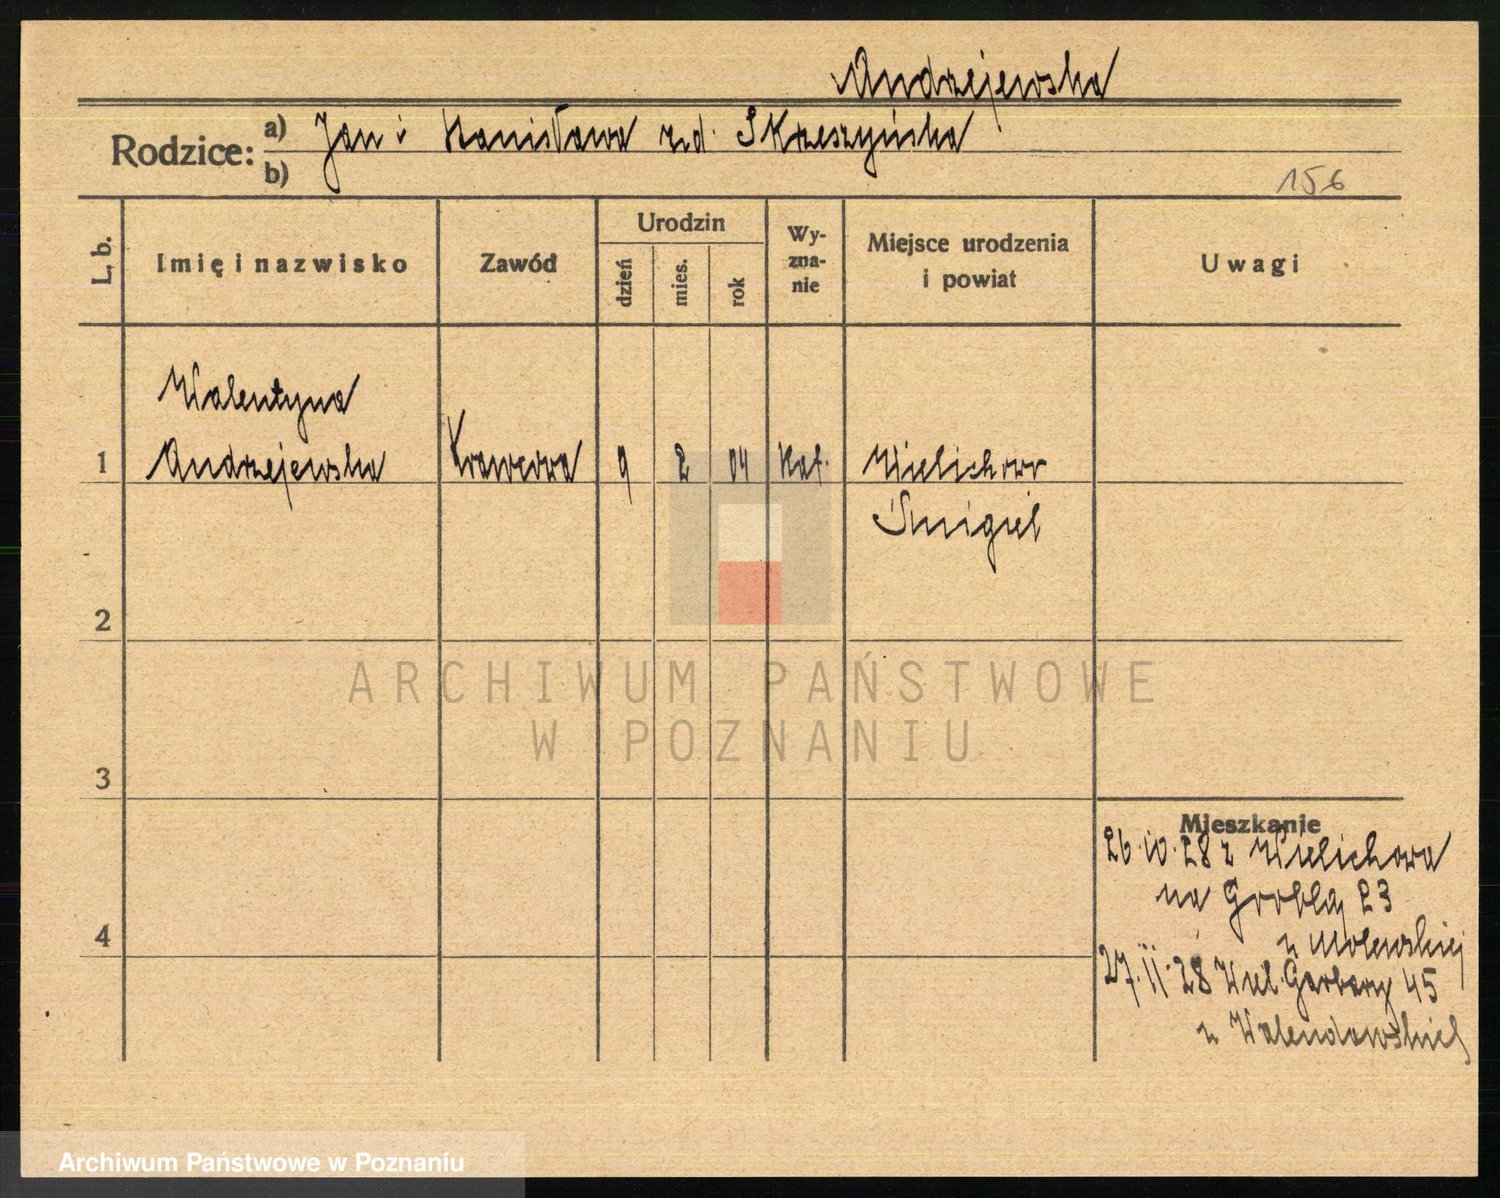 Andrzejewska
Rodzice: a) Jan i Stanisława zd. Skrzeszyńska
b)
156
L. b.
Imię i nazwisko
Zawód
Urodzin
dzień
mies.
rok
Wy-
zna-
nie
Miejsce urodzenia
i powiat
Uwagi
Walentyna
1 Andrzejewska Krawcowa 9 2 04 kat. Wielichowo
Śmigiel
2
ARCHIWUM PAŃSTWOWE
W POZNANIU
3
Mieszkanie
26.10.28 z Wielichowa
na Grobla 23
4
27.11.28 Wiel. Garbary 45
Archiwum Państwowe w Poznaniu